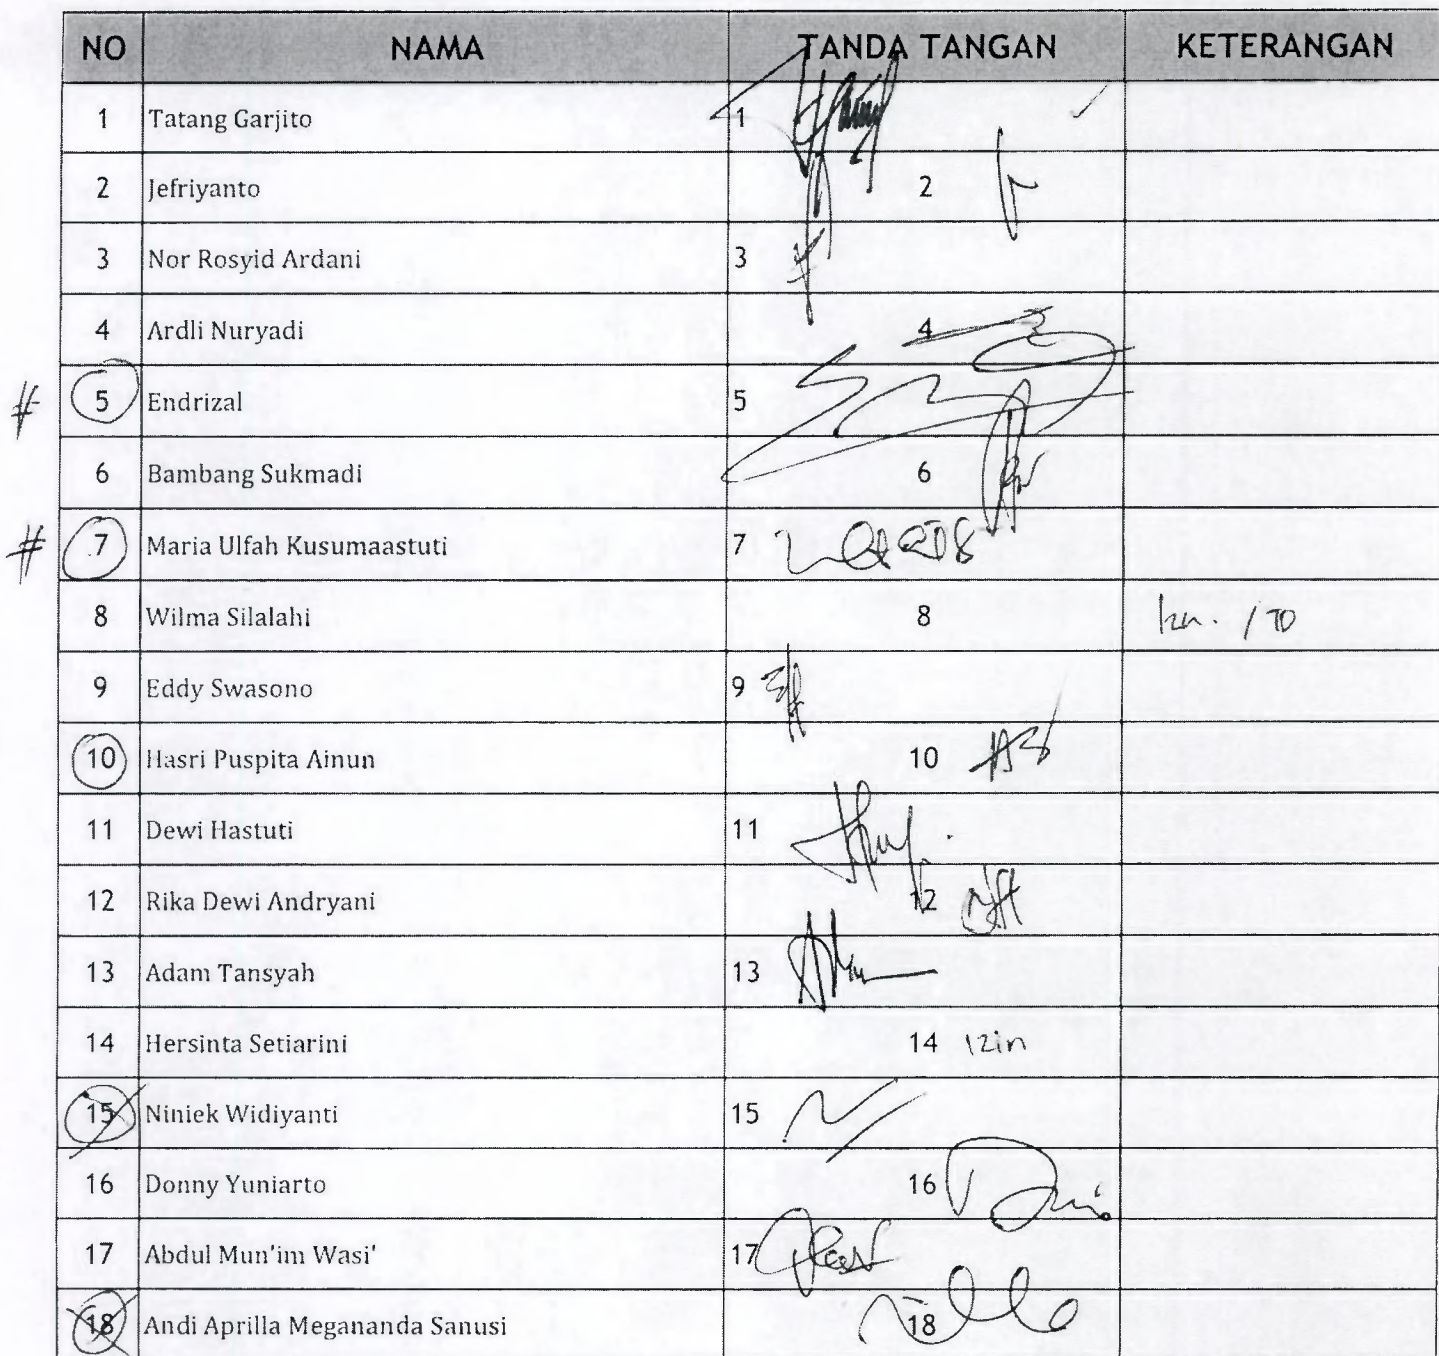 NO NAMA TANDA TANGAN KETERANGAN
1 Tatang Garjito 1
2 Jefriyanto 2
3 Nor Rosyid Ardani 3
4 Ardli Nuryadi 4
# 5 Endrizal 5
6 Bambang Sukmadi 6
# 7 Maria Ulfah Kusumaastuti 7
8 Wilma Silalahi 8
9 Eddy Swasono 9
10 Hasri Puspita Ainun 10
11 Dewi Hastuti 11
12 Rika Dewi Andryani 12
13 Adam Tansyah 13
14 Hersinta Setiarini 14 izin
15 Niniek Widiyanti 15
16 Donny Yuniarto 16
17 Abdul Mun'im Wasi' 17
18 Andi Aprilla Megananda Sanusi 18